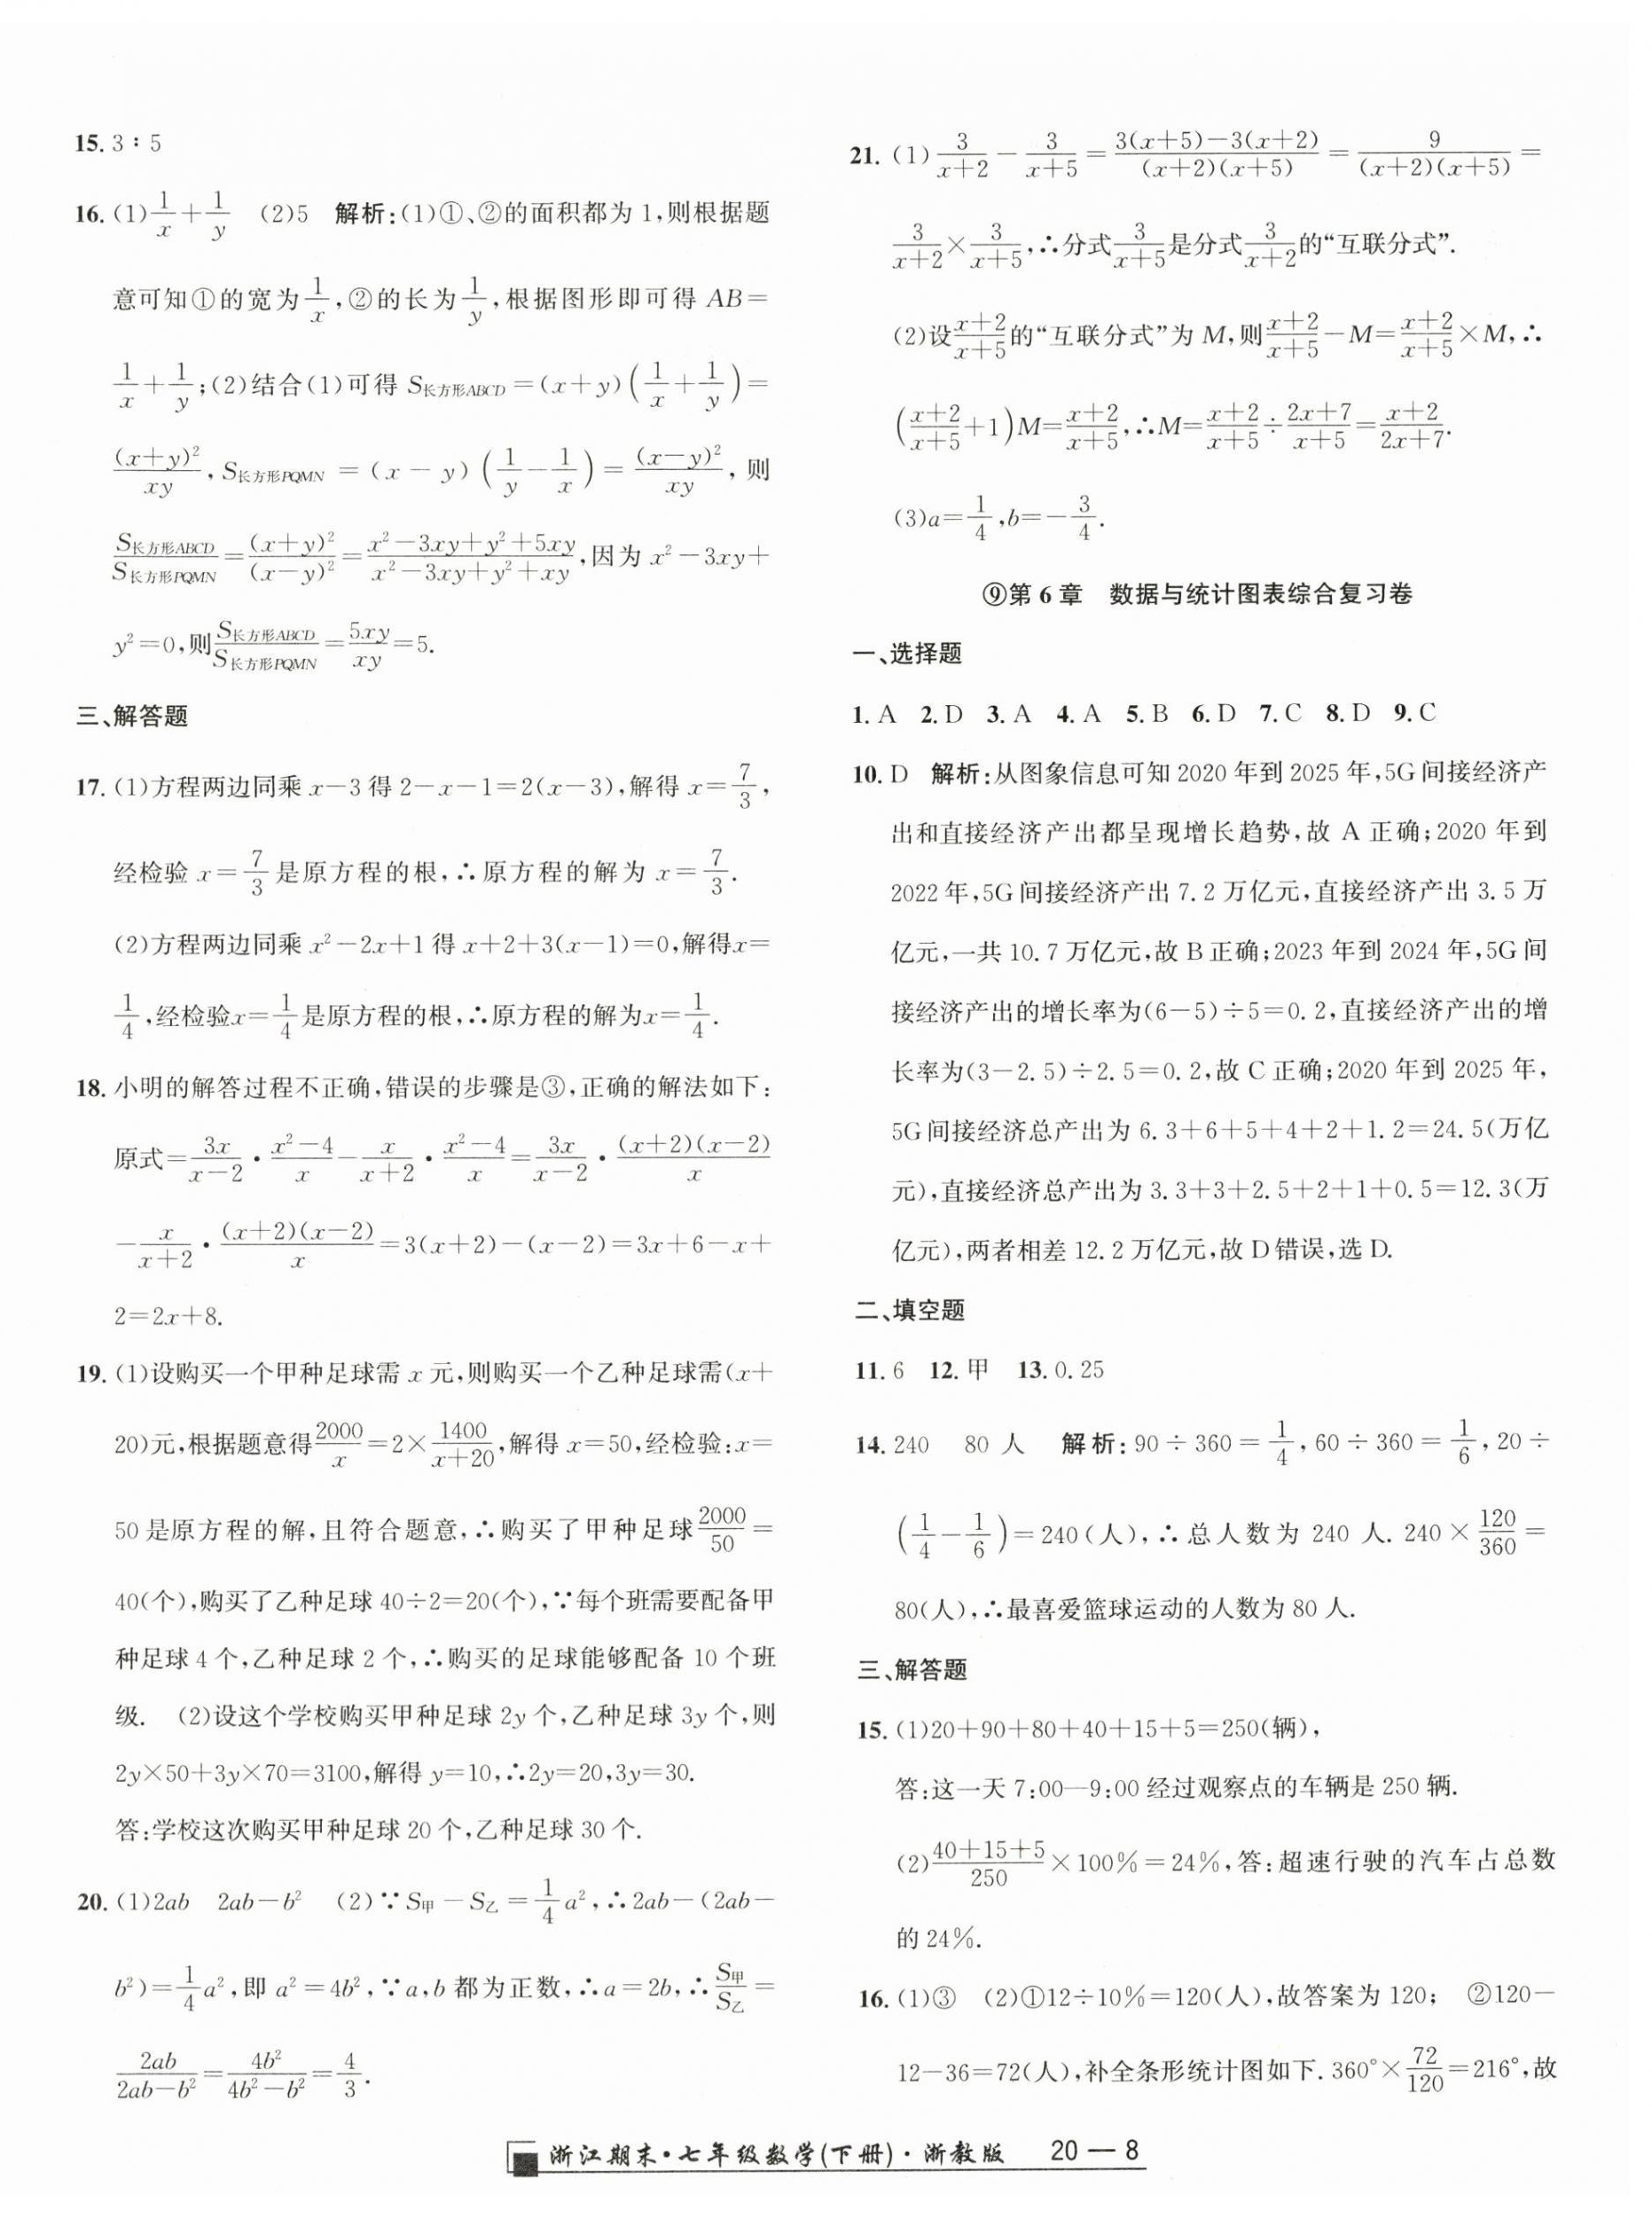 15. 3∶5
16. (1)1/x+1/y (2)5 解析:(1)①、②的面积都为 1,则根据题
意可知①的宽为1/x,②的长为1/y,根据图形即可得 AB=
1/x+1/y;(2)结合(1)可得 S长方形ABCD=(x+y)(1/x+1/y)=
(x+y)²/xy, S长方形PQMN=(x-y)(1/y-1/x)=(x-y)²/xy, 则
S长方形ABCD/S长方形PQMN=(x+y)²/(x-y)²=(x²-3xy+y²+5xy)/(x²-3xy+y²+xy),因为 x²-3xy+
y²=0,则S长方形ABCD/S长方形PQMN=5xy/xy=5.
三、解答题
17. (1)方程两边同乘 x-3 得 2-x-1=2(x-3),解得 x=7/3,
经检验 x=7/3是原方程的根,∴原方程的解为 x=7/3.
(2)方程两边同乘 x²-2x+1 得 x+2+3(x-1)=0,解得x=
1/4,经检验x=1/4是原方程的根,∴原方程的解为x=1/4.
18. 小明的解答过程不正确,错误的步骤是③,正确的解法如下:
原式=3x/(x-2)·(x²-4)/x-x/(x+2)·(x²-4)/x=3x/(x-2)·(x+2)(x-2)/x
-x/(x+2)·(x+2)(x-2)/x=3(x+2)-(x-2)=3x+6-x+
2=2x+8.
19. (1)设购买一个甲种足球需 x 元,则购买一个乙种足球需(x+
20)元,根据题意得2000/x=2×1400/(x+20),解得 x=50,经检验:x=
50 是原方程的解,且符合题意,∴购买了甲种足球2000/50=
40(个),购买了乙种足球 40÷2=20(个),∵每个班需要配备甲
种足球 4 个,乙种足球 2 个,∴购买的足球能够配备 10 个班
级. (2)设这个学校购买甲种足球 2y 个,乙种足球 3y 个,则
2y×50+3y×70=3100,解得 y=10,∴2y=20,3y=30.
答:学校这次购买甲种足球 20 个,乙种足球 30 个.
20. (1)2ab 2ab-b² (2)∵S甲-S乙=1/4a²,∴2ab-(2ab-
b²)=1/4a²,即 a²=4b²,∵a,b 都为正数,∴a=2b,∴S甲/S乙=
2ab/(2ab-b²)=4b²/(4b²-b²)=4/3.
21. (1)3/(x+2)-3/(x+5)=(3(x+5)-3(x+2))/((x+2)(x+5))=9/((x+2)(x+5))=
3/(x+2)×3/(x+5),∴分式3/(x+5)是分式3/(x+2)的“互联分式”.
(2)设(x+2)/(x+5)的“互联分式”为 M,则(x+2)/(x+5)-M=(x+2)/(x+5)×M,∴
((x+2)/(x+5)+1)M=(x+2)/(x+5),∴M=(x+2)/(x+5)÷(2x+7)/(x+5)=(x+2)/(2x+7).
(3)a=1/4,b=-3/4.
⑨第 6 章 数据与统计图表综合复习卷
一、选择题
1. A 2. D 3. A 4. A 5. B 6. D 7. C 8. D 9. C
10. D 解析:从图象信息可知 2020 年到 2025 年,5G 间接经济产
出和直接经济产出都呈现增长趋势,故 A 正确;2020 年到
2022 年,5G 间接经济产出 7.2 万亿元,直接经济产出 3.5 万
亿元,一共 10.7 万亿元,故 B 正确;2023 年到 2024 年,5G 间
接经济产出的增长率为(6-5)÷5=0.2,直接经济产出的增
长率为(3-2.5)÷2.5=0.2,故 C 正确;2020 年到 2025 年,
5G 间接经济总产出为 6.3+6+5+4+2+1.2=24.5(万亿
元),直接经济总产出为 3.3+3+2.5+2+1+0.5=12.3(万
亿元),两者相差 12.2 万亿元,故 D 错误,选 D.
二、填空题
11. 6 12. 甲 13. 0.25
14. 240 80 人 解析:90÷360=1/4,60÷360=1/6,20÷
(1/4-1/6)=240(人),∴总人数为 240 人. 240×120/360=
80(人),∴最喜爱篮球运动的人数为 80 人.
三、解答题
15. (1)20+90+80+40+15+5=250(辆),
答:这一天 7:00—9:00 经过观察点的车辆是 250 辆.
(2)(40+15+5)/250×100%=24%,答:超速行驶的汽车占总数
的 24%.
16. (1)③ (2)①12÷10%=120(人),故答案为 120; ②120-
12-36=72(人),补全条形统计图如下. 360°×72/120=216°,故
浙江期末·七年级数学(下册)·浙教版 20 — 8